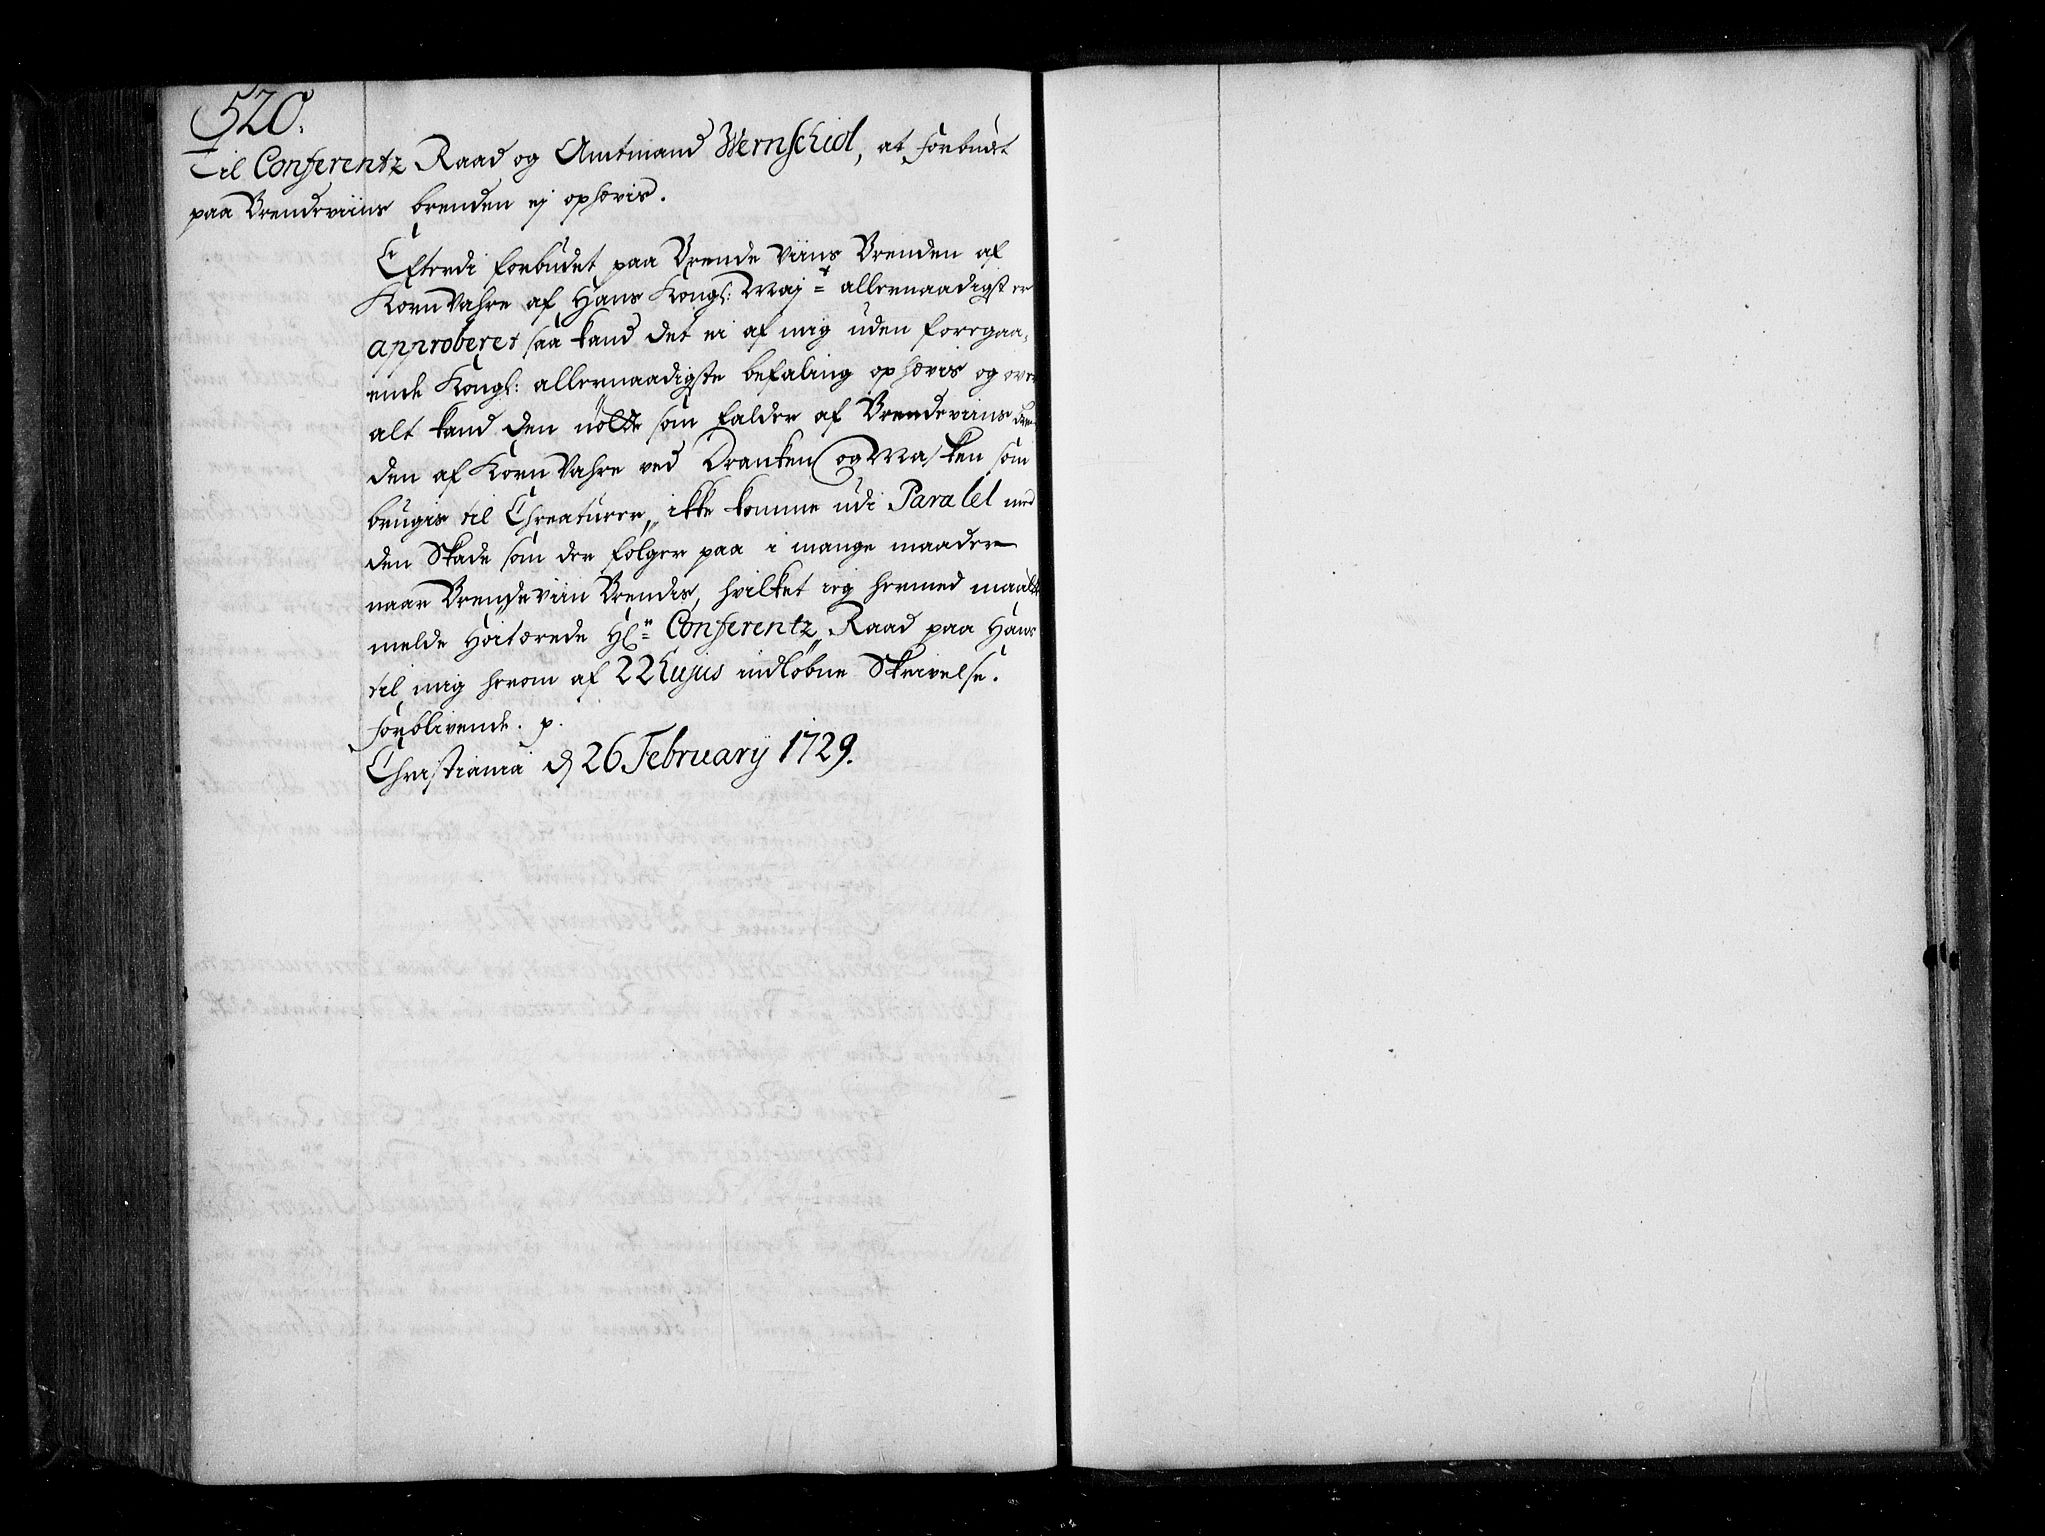 520.
Til Conferentz Raad og Amtmand Wernschiol, at forbudet
paa Brendeviins brenden ej ophævis.
Efterdi forbudet paa Brende Viins Brenden af
Korn Vahre af Hans Kongl: Majt allernaadigst er
approberet saa kand det ei af mig uden foregaa-
ende Kongl: allernaadigste befaling ophævis og over
alt kand den nötte som falder af Brendeviins Bren
den af Korn Vahre ved Dranken og Masken som
brugis til Chreaturer, ikke komme udi Paralel med
den Skade som der folger paa i mange maader
naar Brendeviin Brendis, hvilket ieg hermed
melde Höitærede Hr Conferentz Raad paa Hans
til mig herom af 22 hujus indlöbne Skrivelse.
forblivende. p.
Christiania d 26 February 1729.